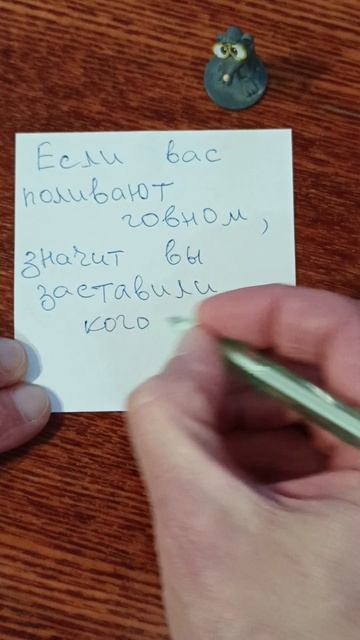 Если вас
поливают
говном,
значит вы
заставили
кого